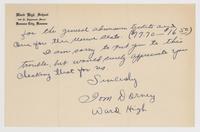 Ward High School
Kansas City, Kansas
for the general admission tickets and
one for the reserve seats. ($9.70 - $16.50)
I am sorry to put you to this
trouble, but would surely appreciate your
checking that for us.
Sincerely
Tom Dorney
Ward High